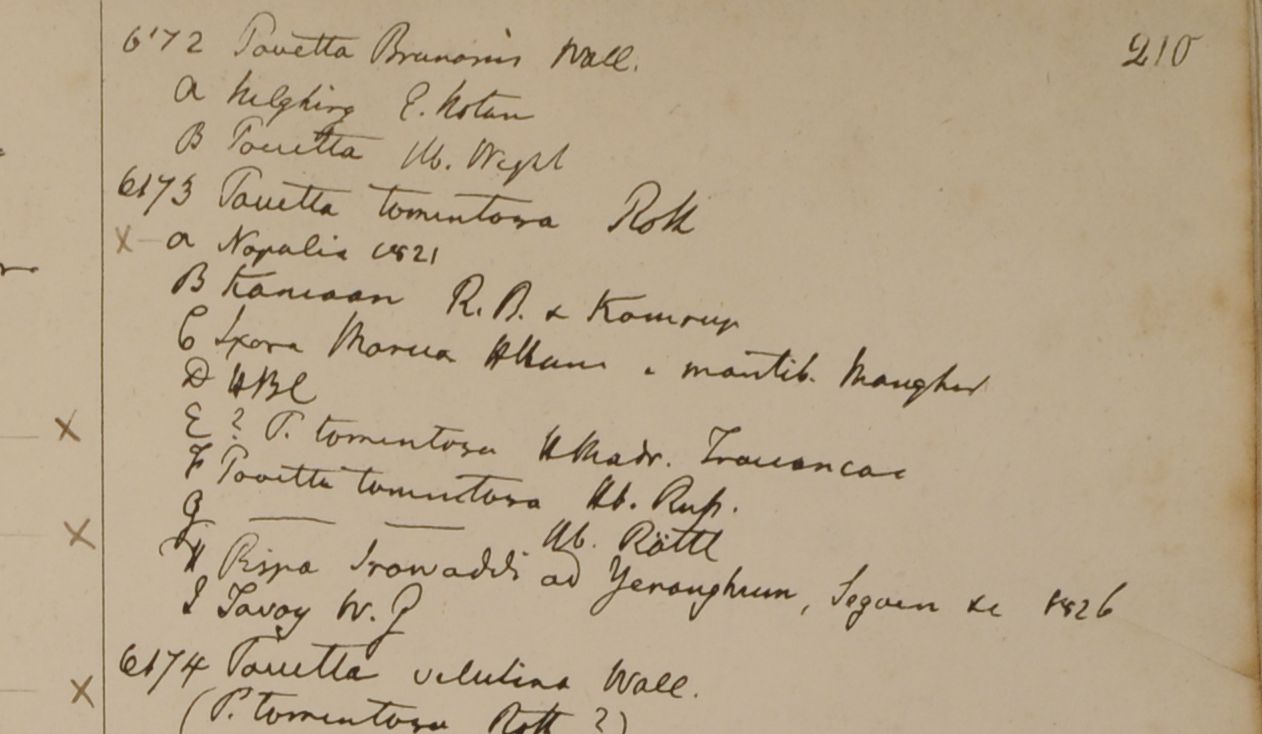 210
6172 Pavetta Brunonis Wall.
A Nilghiry E. Noton
B Pavetta Hb. Wight
6173 Pavetta tomentosa Roth
x A Napalia 1821
B Kamaon R. B. & Kamrup
C Ixora Marua HHam e montib. Mongher
D HBC
x
E ? P. tomentosa HMadr. Travancor
F Pavetta tomentosa Hb. Rusp.
G — — Hb. Röttl
x
H Ripa Irawaddi ad Yenanghuen, Segaen &c 1826
I Tavoy W. G
x
6174 Pavetta velutina Wall.
(P. tomentosa Roth ?)